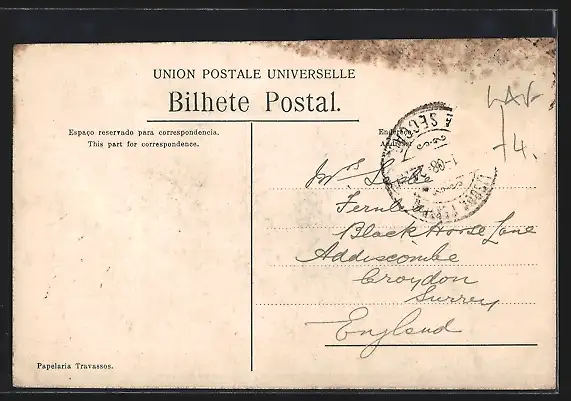 UNION POSTALE UNIVERSELLE
Bilhete Postal.
Espaço reservado para correspondencia.
This part for correspondence.
A SECÇÃO
Mrs
Black Horse Lane
Addiscombe
Croydon
Surrey
England
Papelaria Travassos.